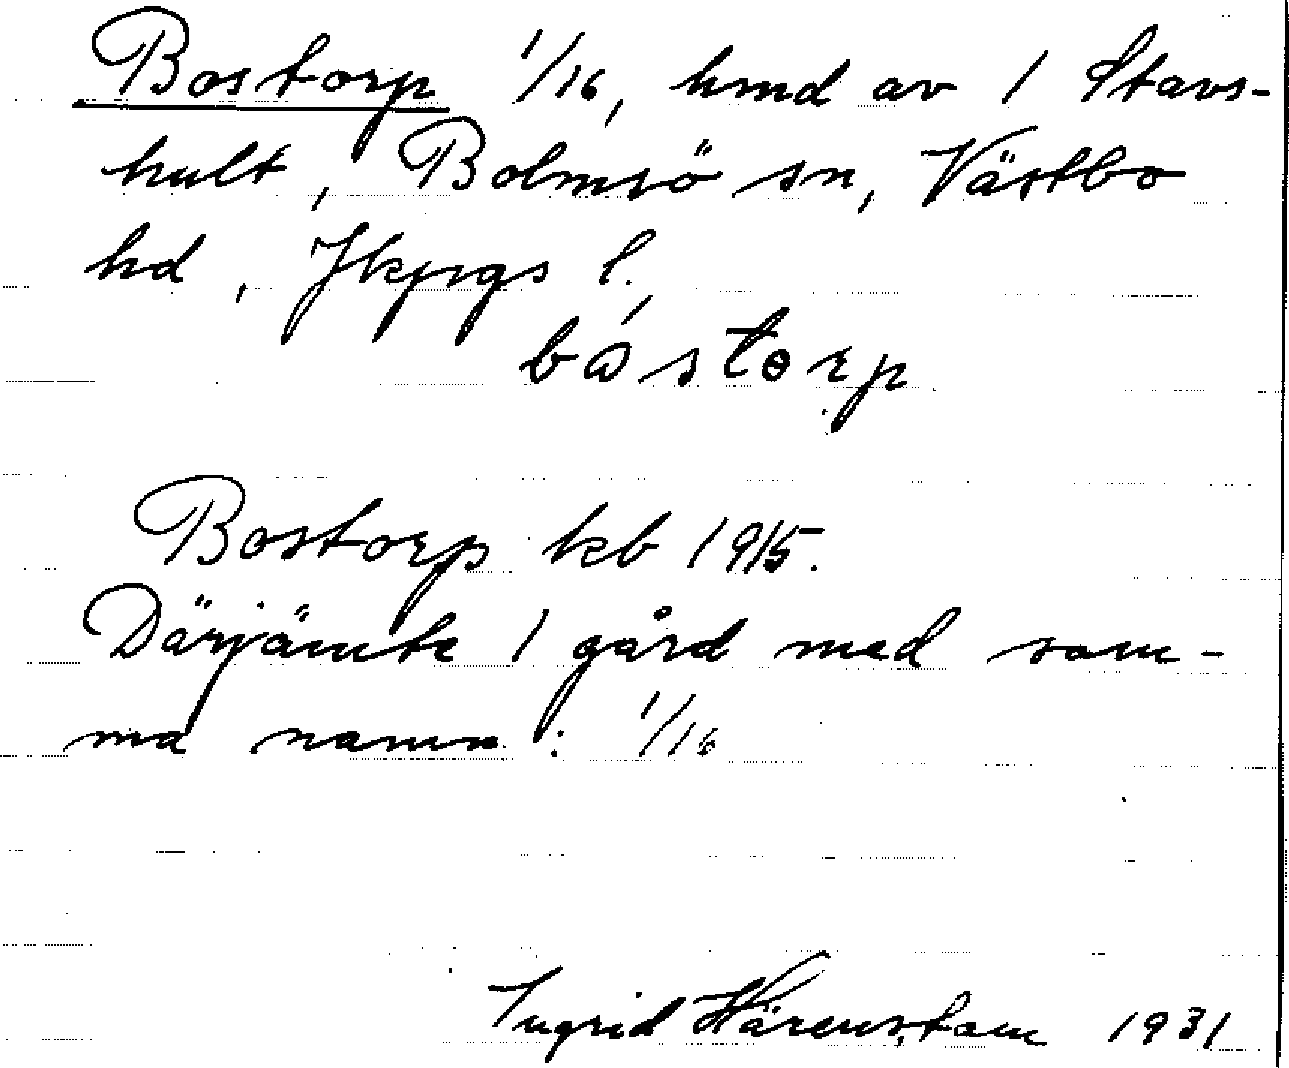 Bostorp 1/16, hmd av 1 Stavs-
hult, Bolmsö sn, Västbo
hd, Jkpgs l.
bóstorp
Bostorp kb 1915.
Därjämte 1 gård med sam-
ma namn: 1/16
Ingrid Härenstam 1931